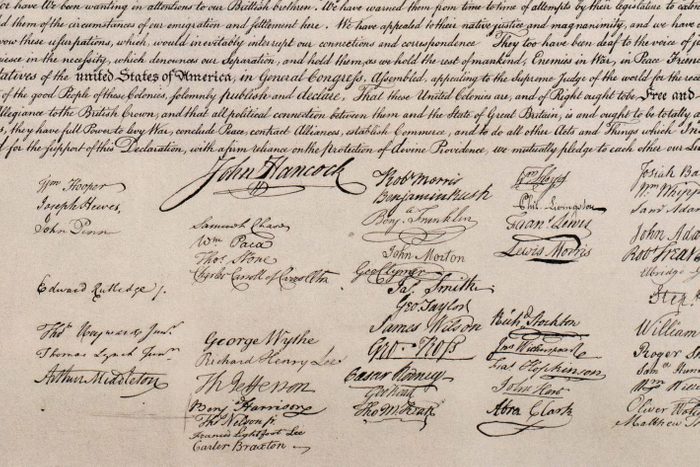 have We been wanting in attentions to our Brittish brethren. We have warned them from time to time of attempts by their legislature to
them of the circumstances of our emigration and settlement here. We have appealed to their native justice and magnanimity, and we have
these usurpations, which, would inevitably interrupt our connections and correspondence They too have been deaf to the voice of
in the necessity, which denounces our Separation, and hold them, as we hold the rest of mankind, Enemies in War, in Peace
of the united States of America, in General Congress, Assembled, appealing to the Supreme Judge of the world for the
of the good People of these Colonies, solemnly publish and declare, That these United Colonies are, and of Right ought to be Free and
Allegiance to the British Crown, and that all political connection between them and the State of Great Britain, is and ought to be totally
they have full Power to levy War, conclude Peace, contract Alliances, establish Commerce, and to do all other Acts and Things which
for the support of this Declaration, with a firm reliance on the protection of divine Providence, we mutually pledge to each other our
John Hancock
Wm Hooper
Joseph Hewes,
John Penn
Edward Rutledge /.
Thos Heyward Junr.
Thomas Lynch Junr.
Arthur Middleton
Samuel Chase
Wm Paca
Thos Stone
Charles Carroll of Carrollton
George Wythe
Richard Henry Lee
Th Jefferson
Benj Harrison
Thos Nelson jr.
Francis Lightfoot Lee
Carter Braxton
Robt Morris
Benjamin Rush
Benj Franklin
John Morton
Geo Clymer
Jas Smith
Geo Taylor
James Wilson
Geo Ross
Caesar Rodney
Geo Read
Tho M:Kean
Wm Floyd
Phil. Livingston
Frans Lewis
Lewis Morris
Richd Stockton
Jno Witherspoon
Fras Hopkinson
John Hart
Abra Clark
Josiah
Wm
Saml
John
Robt Treat
Elbridge
Step
William
Roger
Wm
Oliver
Matthew